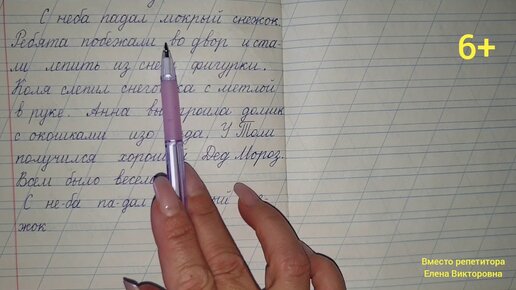 С неба падал мокрый снежок
Ребята побежали во двор и ста-
ли лепить из сне фигурки.
Коля слепил снего са с метлой
в руке. Анна вы троила домик
с окошками изо да, У Толи
получился хороший Дед Мороз.
Всем было весел
С не-ба па-дал ый -
жок
6+
Вместо репетитора
Елена Викторовна